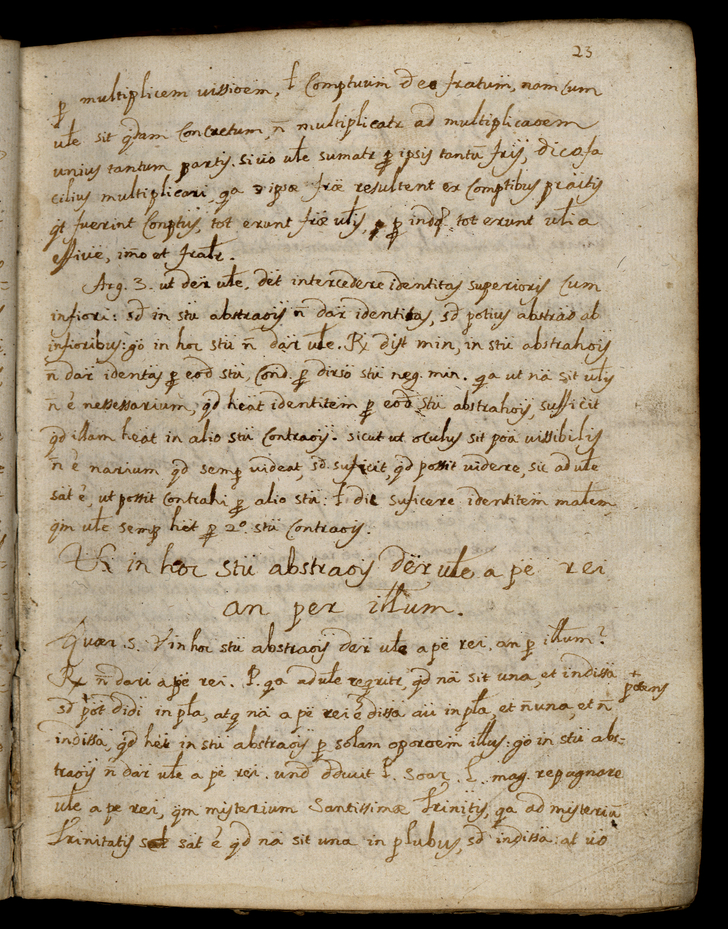 23
p multiplicem vissioem, f Comptuum deo fratum, nam cum
ule sit qdam Concretum, n multiplicatr ad multiplicaoem
unius tantum partis. si vo ule sumatr p ipsis tantu fris, dico fa
cilius multiplicari, qa ipsae frae resultent ex Comptibus praitis
qt fuerint Comptus, tot erunt frae ulis, p tot erunt ulia
effive, imo et fratr.
Arg. 3. ut der ule, det intercedere identitas superioris cum
infiori: sd in stu abstraois n dar identitas, sd potius abstrao ab
infioribus: go in hoc stu n dar ule. Rx dist min, in stu abstrahois
n dar identas p eod stu, Cond. p dirso stu neg. min. qa ut na sit ulis
n e nessessarium, qd heat identitem p eod stu abstrahois, sufficit
qd illam heat in alio stu Contraois. sicut ut oculus sit poa vissibilis
n e narium qd semp videat, sd suficit, qd possit videre, sic ad ule
sat e, ut possit Contrahi p alio stu: f dic suficere identitem malem,
qm ule semp het p 2o. stu Contraois.
Ur in hoc stu abstraois der ule a pe rei
an per illum.
Quaer. 5. Vr in hoc stu abstraois der ule a pe rei, an p illum?
Rx n dari a pe rei. P. qa ad ule requiritr, qd na sit una, et indissa
sd pot didi in pla, atq na a pe rei e dissa au in pla, et n una, et n
+ potens
indissa, qd het in stu abstraois p solam oporoem illus: go in stu abs-
traois n dar ule a pe rei. und dduit P. Soar. l. mag. repugnare
ule a pe rei, qm misterium Santissimae Trinitis, qa ad misteriu
Trinitatis sat e qd na sit una in plubus, sd indissa: at vo